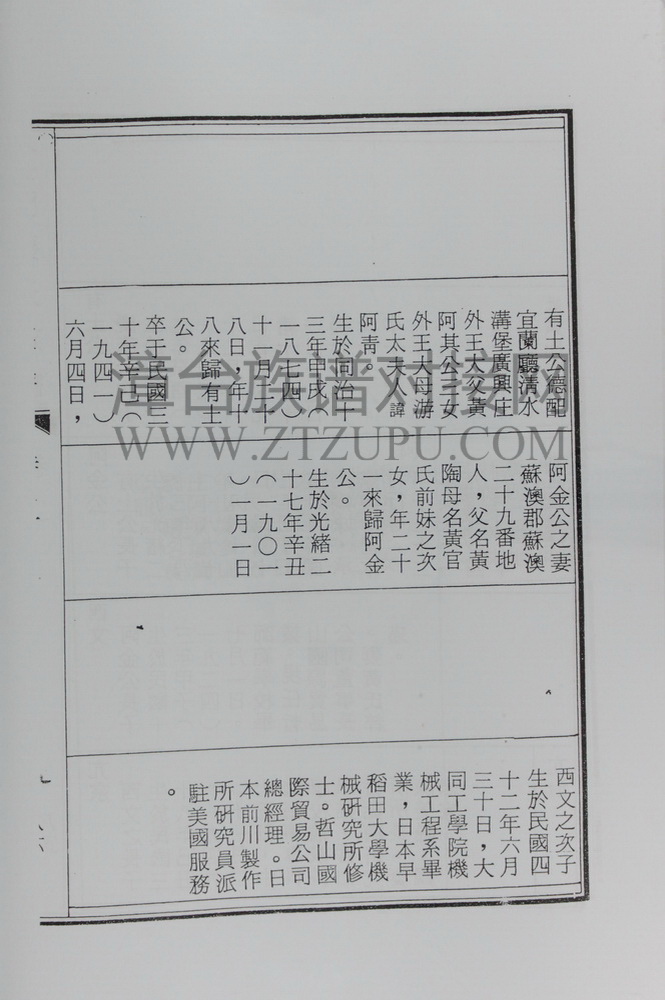 有土公德配
宜蘭廳清水
溝堡廣興庄
外王大父黃
阿其公三女
外王大母游
氏太夫人諱
阿靑。
生於同治十
三年甲戌(
一八七四)
十一月二十
八日,年十
八來歸有土
公。
卒于民國三
十年辛已(
一九四一)
六月四日,
阿金公之妻
蘇澳郡蘇澳
二十九番地
人,父名黃
陶母名黃官
氏前妹之次
女,年二十
一來歸阿金
公。
生於光緒二
十七年辛丑
(一九〇一
)一月一日
西文之次子
生於民國四
十二年六月
三十日,大
同工學院機
械工程系畢
業,日本早
稻田大學機
械研究所修
士。哲山國
際貿易公司
總經理。日
本前川製作
所研究員派
駐美國服務
。
漳台族谱对接网
WWW.ZTZUPU.COM